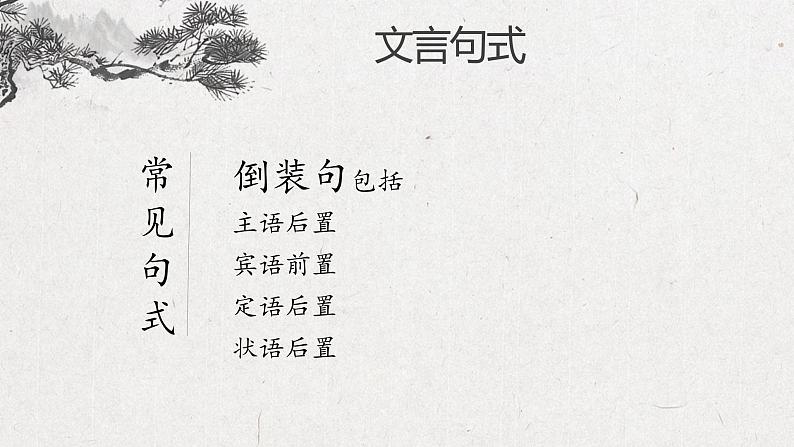 文言句式
常见句式
倒装句包括
主语后置
宾语前置
定语后置
状语后置